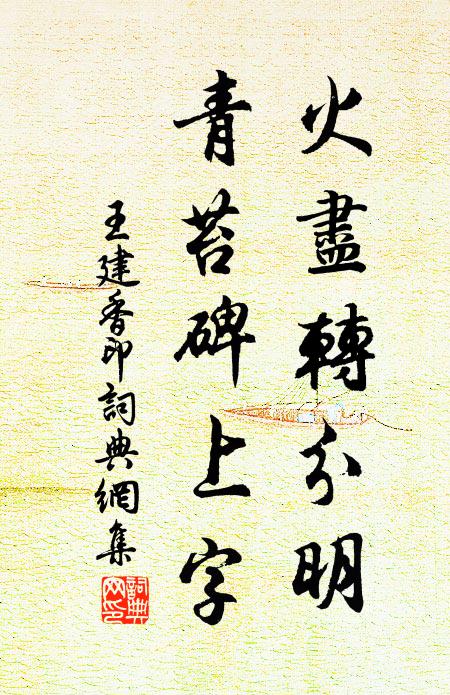 火盡轉分明
青苔碑上字
王建香印詞典網集
詞典
网印